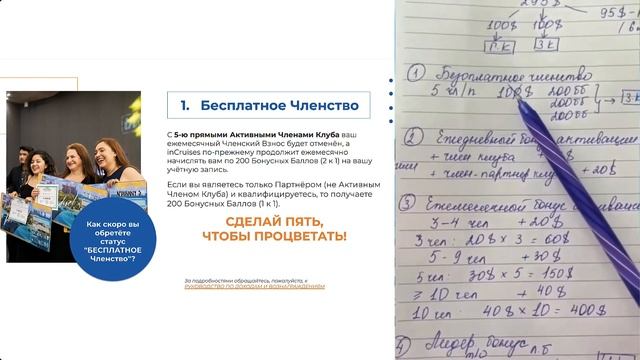 1. Бесплатное Членство
С 5-ю прямыми Активными Членами Клуба ваш
ежемесячный Членский Взнос будет отменён, а
inCruises по-прежнему продолжит ежемесячно
начислять вам по 200 Бонусных Баллов (2 к 1) на вашу
учётную запись.
Если вы являетесь только Партнёром (не Активным
Членом Клуба) и квалифицируетесь, то получаете
200 Бонусных Баллов (1 к 1).
СДЕЛАЙ ПЯТЬ,
ЧТОБЫ ПРОЦВЕТАТЬ!
Как скоро вы
обретёте
статус
"БЕСПЛАТНОЕ
Членство"?
За подробностями обращайтесь, пожалуйста, к
РУКОВОДСТВО ПО ДОХОДАМ И ВОЗНАГРАЖДЕНИЯМ
295$
100$ 100$ 95$
П.К З К
① Безоплатное членство
5 чл/п 100$ 200ББ
200ББ → З К
200ББ
② Ежедневный бонус активации
+ член клуба
+ член-партнер клуб + 20$
③ Ежемесячный бонус
3-4 чел + 20$
3 чел: 20$ × 3 = 60$
5-9 чел + 30$
5 чел: 30$ × 5 = 150$
≥ 10 чел + 40$
10 чел: 40$ × 10 = 400$
④ Лидер бонус